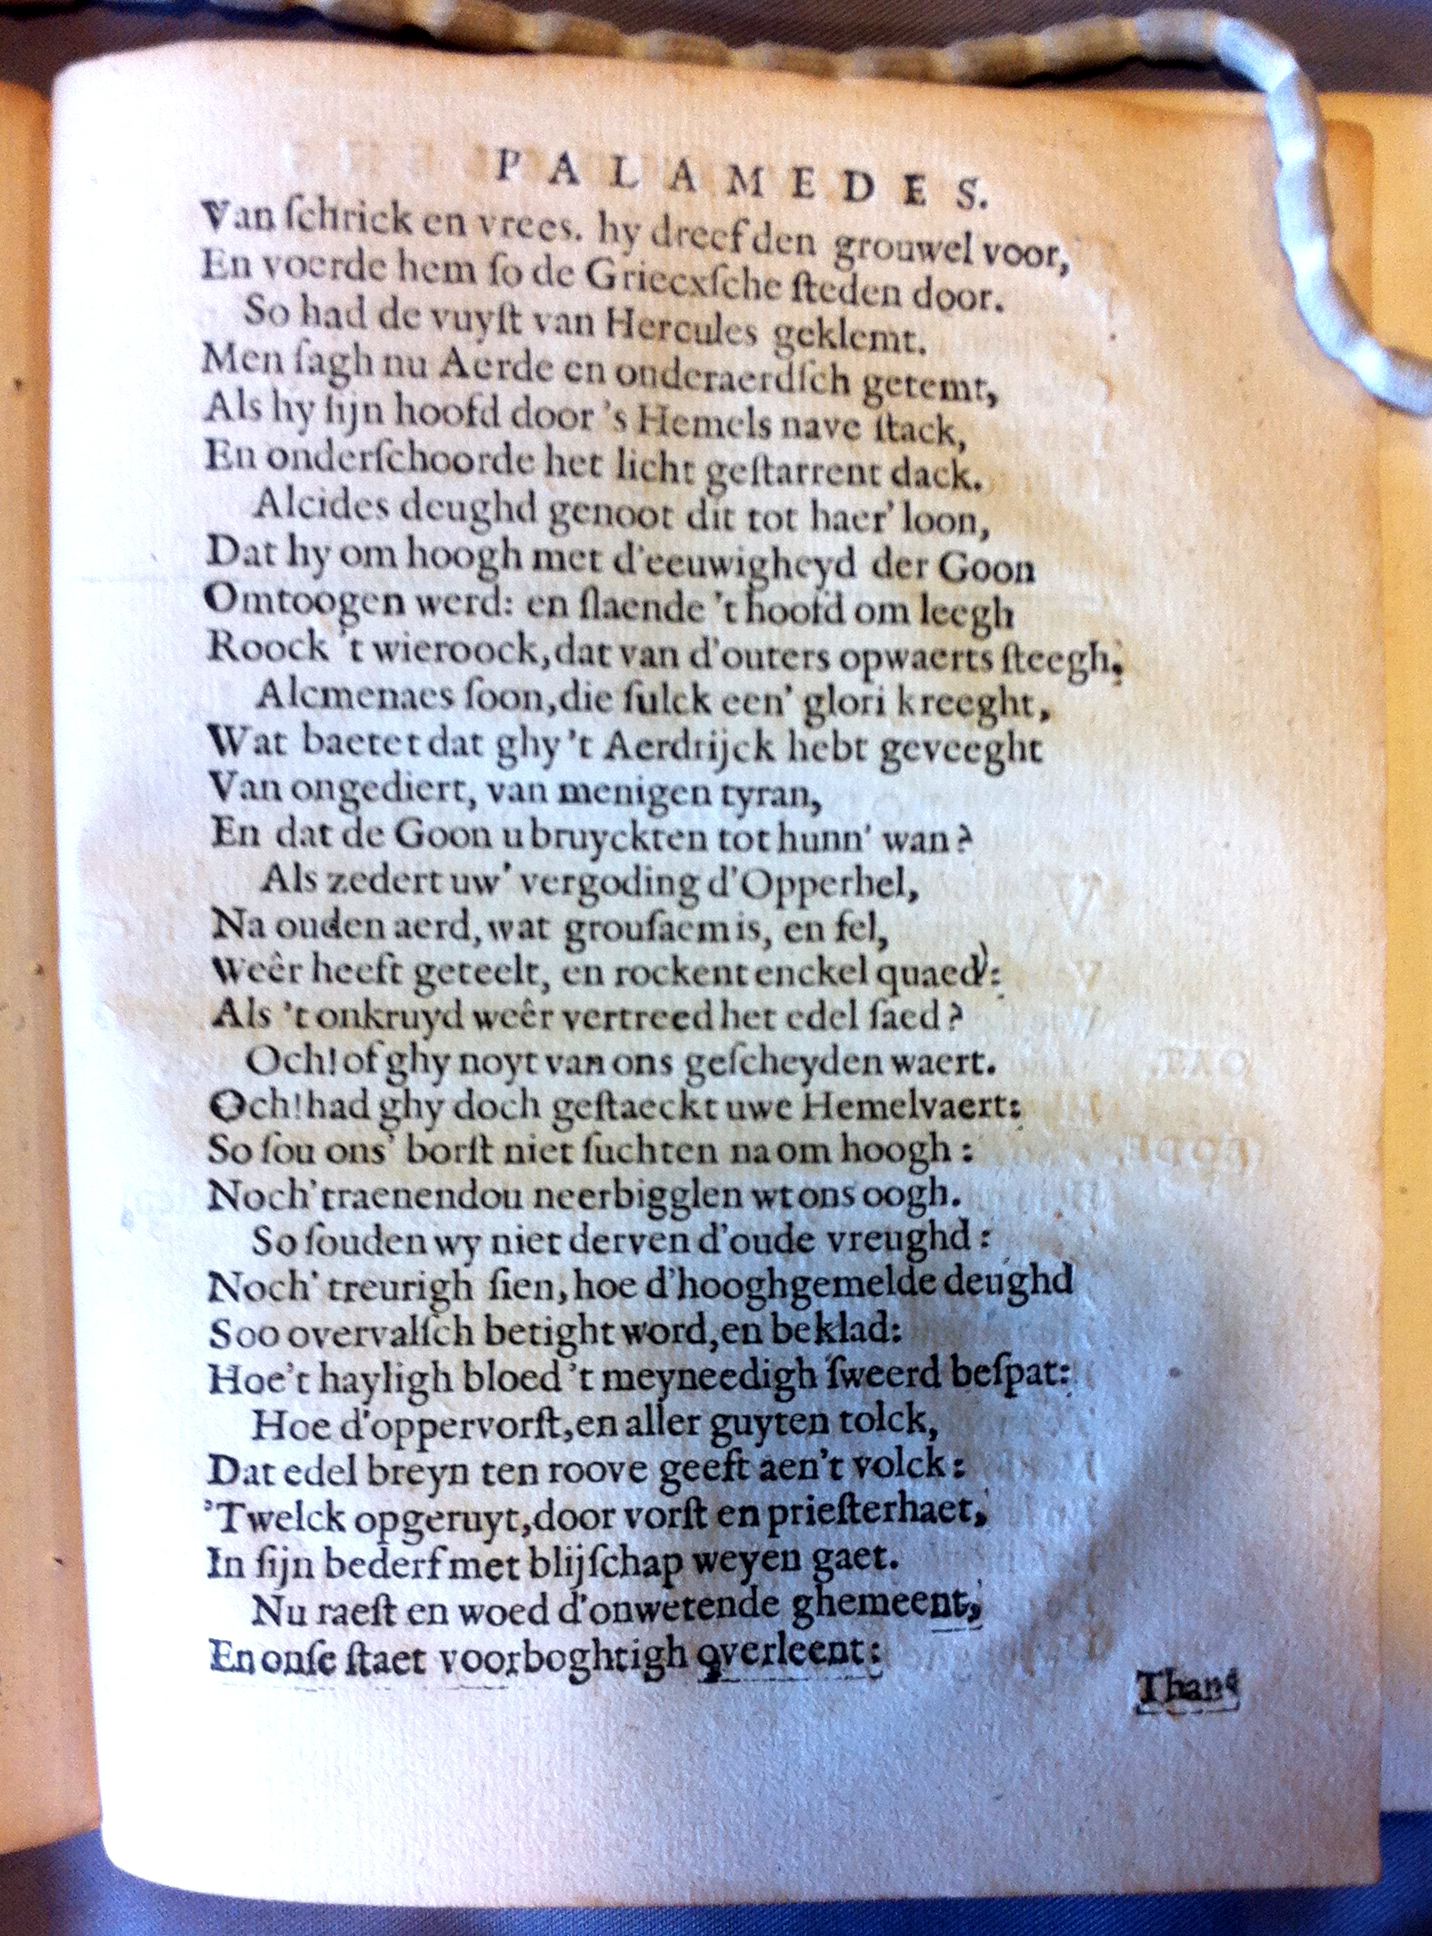 PALAMEDES.
Van ſchrick en vrees. hy dreef den grouwel voor,
En voerde hem ſo de Griecxſche ſteden door.
So had de vuyſt van Hercules geklemt.
Men ſagh nu Aerde en onderaerdſch getemt,
Als hy ſijn hoofd door 's Hemels nave ſtack,
En onderſchoorde het licht geſtarrent dack.
Alcides deughd genoot dit tot haer' loon,
Dat hy om hoogh met d'eeuwigheyd der Goon
Omtoogen werd: en ſlaende 't hoofd om leegh
Roock 't wieroock, dat van d'outers opwaerts ſteegh.
Alcmenaes ſoon, die ſulck een' glori kreeght,
Wat baetet dat ghy 't Aerdrijck hebt geveeght
Van ongediert, van menigen tyran,
En dat de Goon u bruyckten tot hunn' wan?
Als zedert uw' vergoding d'Opperhel,
Na ouden aerd, wat grouſaem is, en fel,
Weêr heeft geteelt, en rockent enckel quaed:
Als 't onkruyd weêr vertreed het edel ſaed?
Och! of ghy noyt van ons geſcheyden waert.
Och! had ghy doch geſtaeckt uwe Hemelvaert:
So ſou ons' borſt niet ſuchten na om hoogh:
Noch' traenendou neerbigglen wt ons oogh.
So ſouden wy niet derven d'oude vreughd:
Noch' treurigh ſien, hoe d'hooghgemelde deughd
Soo overvalſch betight word, en beklad:
Hoe 't hayligh bloed 't meyneedigh ſweerd beſpat:
Hoe d'oppervorſt, en aller guyten tolck,
Dat edel breyn ten roove geeft aen't volck:
'Twelck opgeruyt, door vorſt en prieſterhaet,
In ſijn bederf met blijſchap weyen gaet.
Nu raeſt en woed d'onwetende ghemeent,
En onſe ſtaet voorboghtigh overleent:
Thans